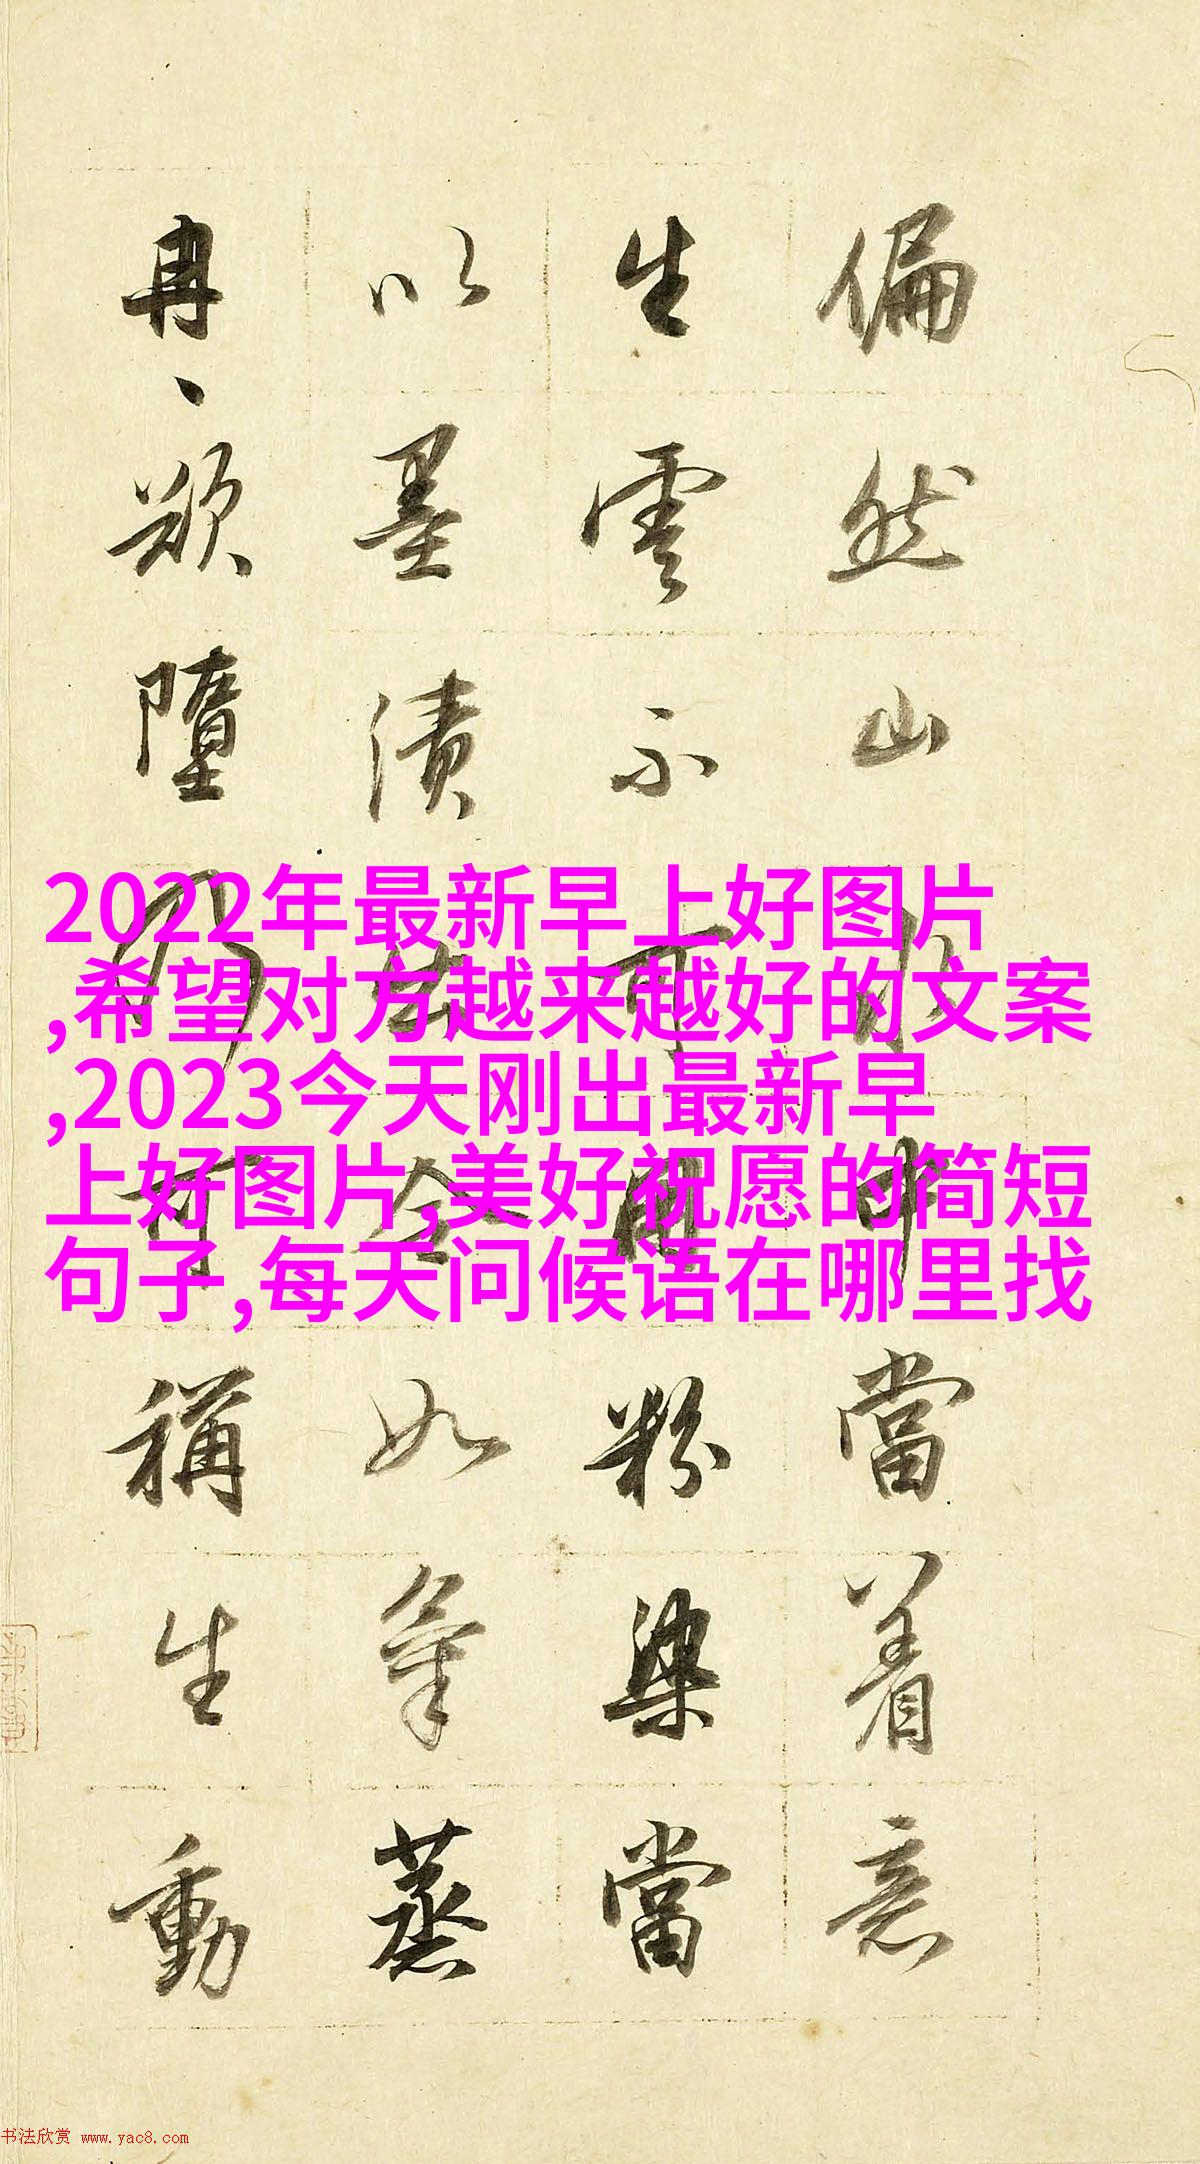 偏然山水中當着意
生雲不可用粉染當
以墨漬出令如氣蒸
冉、欲墮乃可稱生動
2022年最新早上好图片
,希望对方越来越好的文案
,2023今天刚出最新早
上好图片,美好祝愿的简短
句子,每天问候语在哪里找
书法欣赏 www.yac8.com